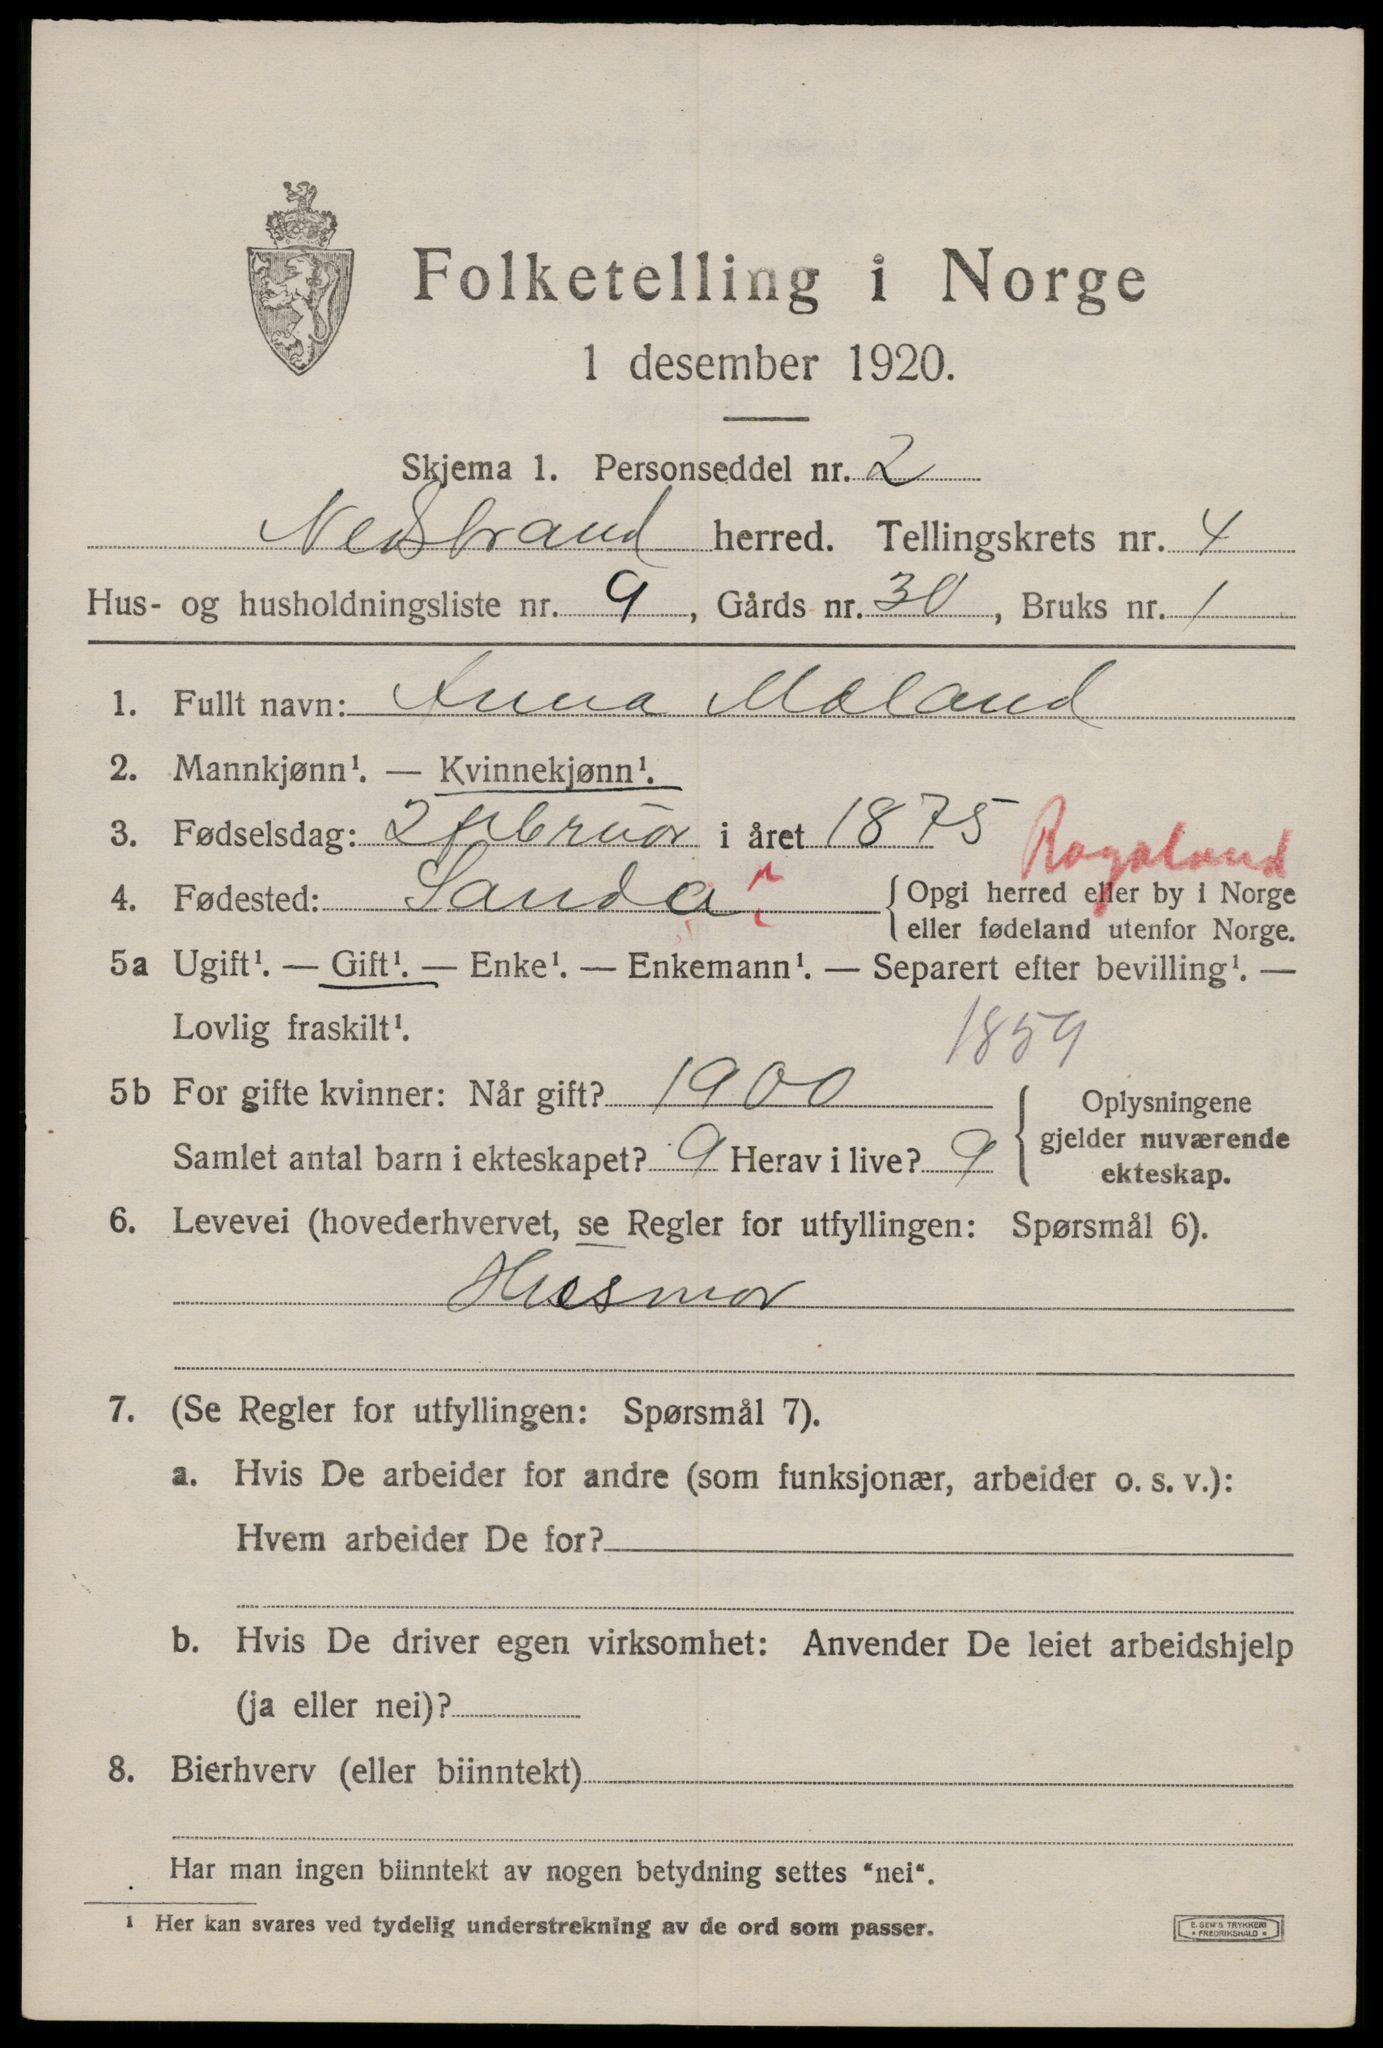 Folketelling i Norge
1 desember 1920.
Skjema 1. Personseddel nr. 2
Nedstrand herred. Tellingskrets nr. 4
Hus- og husholdningsliste nr. 9, Gårds nr. 30, Bruks nr. 1
1. Fullt navn: Anna Mæland
2. Mannkjønn¹. — Kvinnekjønn¹.
3. Fødselsdag: 2 februar i året 1875
Rogaland
4. Fødested: Sanda { Opgi herred eller by i Norge
eller fødeland utenfor Norge.
5a Ugift¹. — Gift¹. — Enke¹. — Enkemann¹. — Separert efter bevilling¹. —
Lovlig fraskilt¹.
1859
5b For gifte kvinner: Når gift? 1900
Samlet antal barn i ekteskapet? 9 Herav i live? 9
{ Oplysningene
gjelder nuværende
ekteskap.
6. Levevei (hovederhvervet, se Regler for utfyllingen: Spørsmål 6).
Husmor
7. (Se Regler for utfyllingen: Spørsmål 7).
a. Hvis De arbeider for andre (som funksjonær, arbeider o. s. v.):
Hvem arbeider De for?
b. Hvis De driver egen virksomhet: Anvender De leiet arbeidshjelp
(ja eller nei)?
8. Bierhverv (eller biinntekt)
Har man ingen biinntekt av nogen betydning settes “nei“.
¹ Her kan svares ved tydelig understrekning av de ord som passer.
E. SEM'S TRYKKERI
* FREDRIKSHALD *